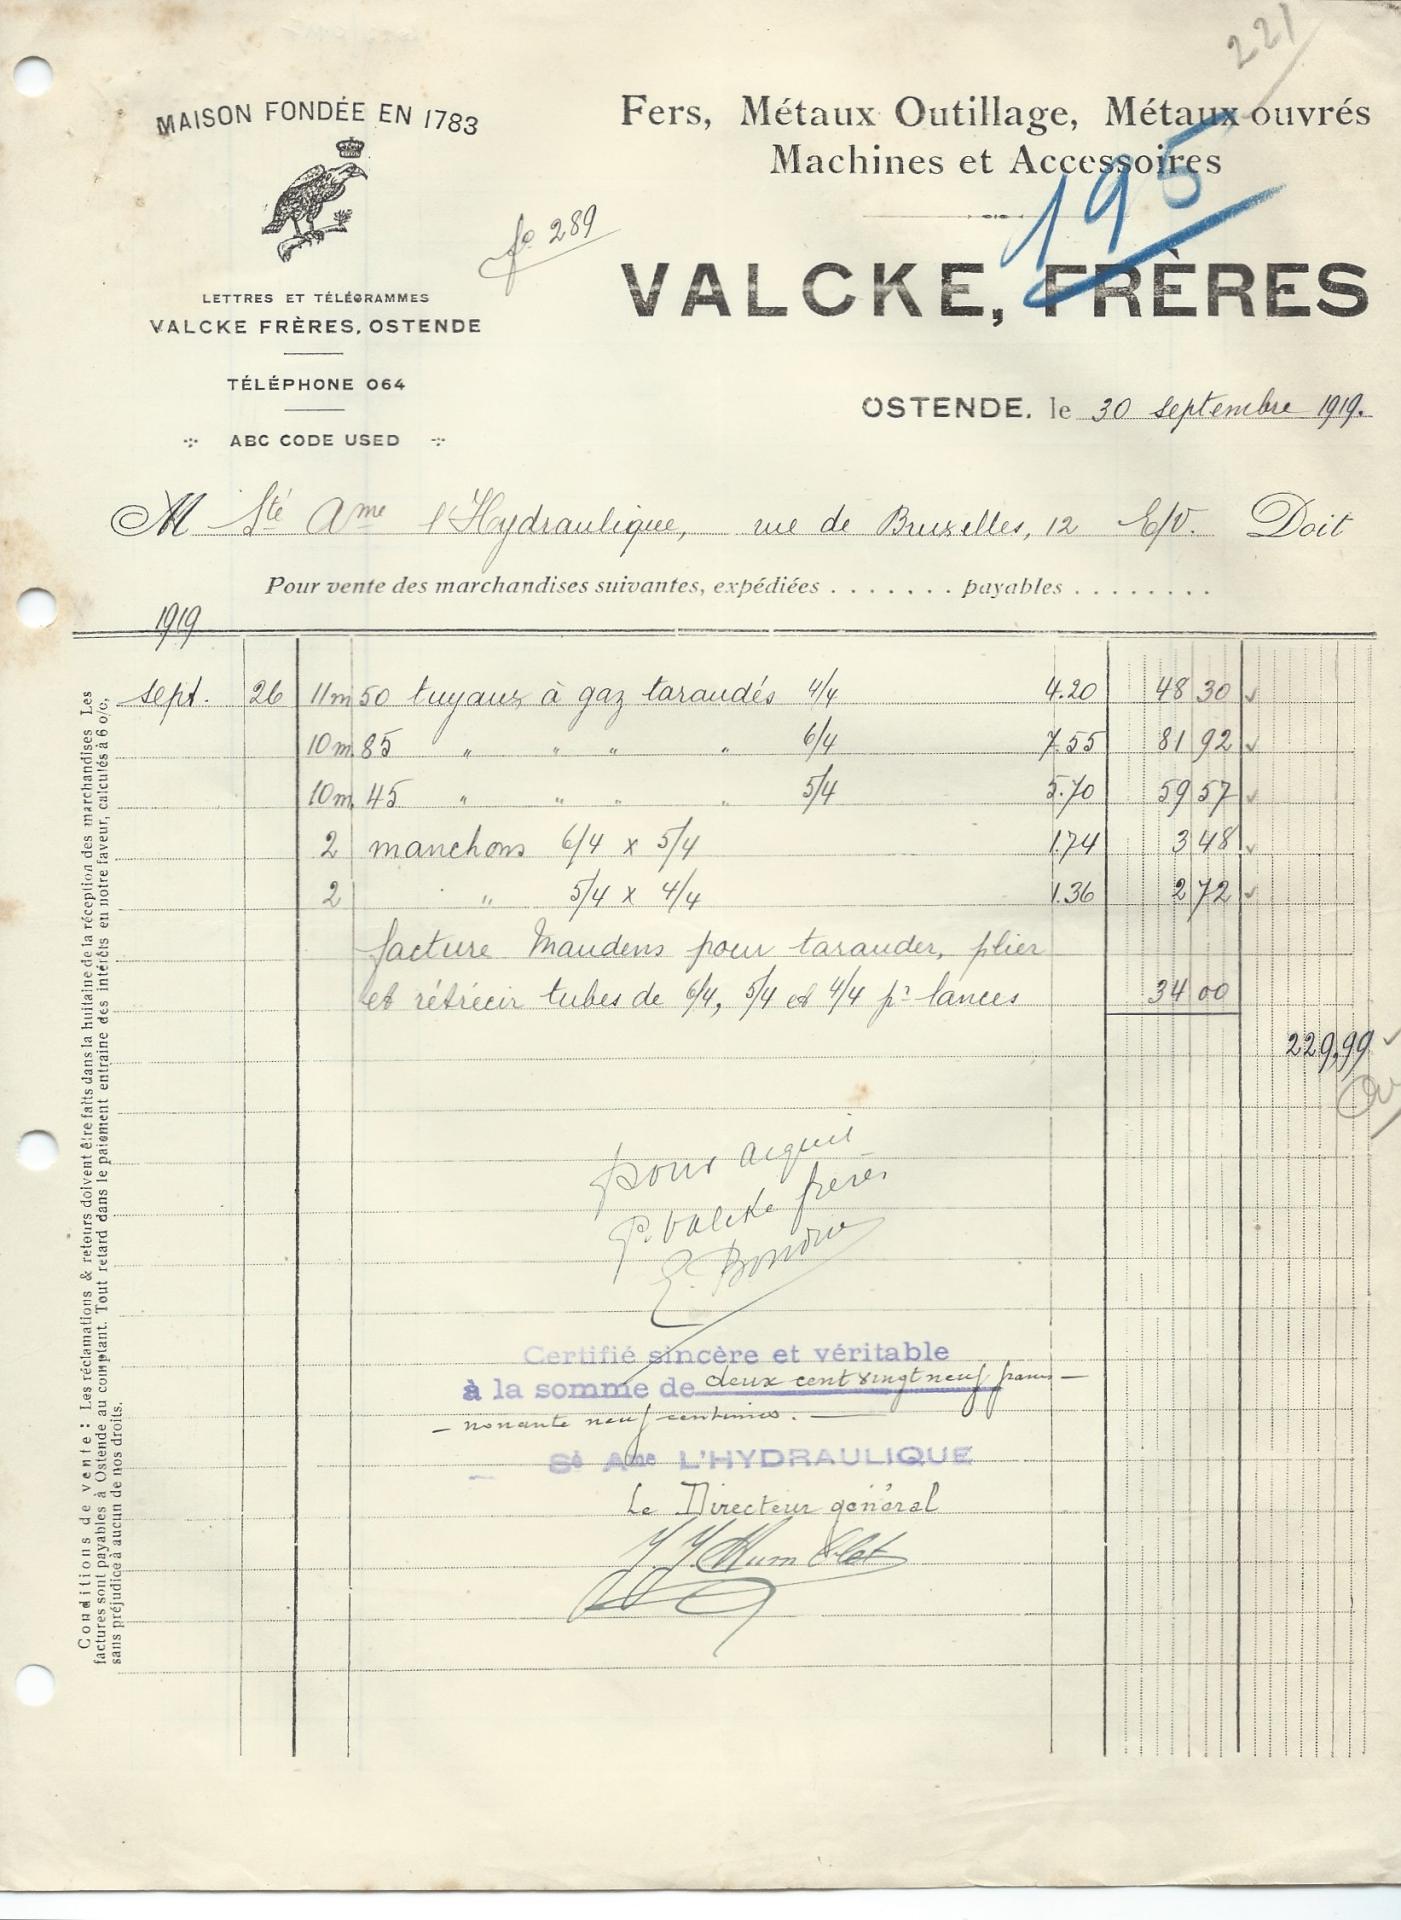 221
MAISON FONDÉE EN 1783
Fers, Métaux Outillage, Métaux ouvrés
Machines et Accessoires
195
fo. 289
LETTRES ET TÉLÉGRAMMES
VALCKE FRÈRES, OSTENDE
VALCKE, FRÈRES
TÉLÉPHONE 064
OSTENDE, le 30 septembre 1919.
ABC CODE USED
M Sté Ame l'Hydraulique, rue de Bruxelles, 12 E/V. Doit
Pour vente des marchandises suivantes, expédiées ....... payables ........
1919
sept. 26 11m 50 tuyaux à gaz taraudés 4/4 4.20 48 30
10m 85 " " " " 6/4 7.55 81 92
10m 45 " " " " 5/4 5.70 59 57
2 manchons 6/4 x 5/4 1.74 3 48
2 " 5/4 x 4/4 1.36 2 72
facture Maudens pour tarauder, plier
et rétrécir tubes de 6/4, 5/4 et 4/4 pr lances 34 00
229,99
pour acquit
P. Valcke frères
Certifié sincère et véritable
à la somme de deux cent vingt neuf francs —
— nonante neuf centimes. —
Sé Ame L'HYDRAULIQUE
Le Directeur général
Conditions de vente : Les réclamations & retours doivent être faits dans la huitaine de la réception des marchandises Les
factures sont payables à Ostende au comptant. Tout retard dans le paiement entraine des intérêts en notre faveur, calculés à 6 o/o,
sans préjudice à aucun de nos droits.